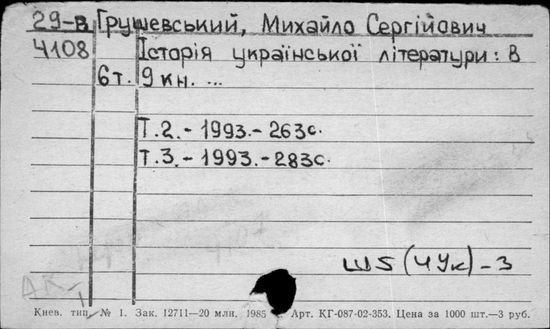 29-в Грушевський, Михайло Сергійович
4108 Історія української літератури: В
6т. 9 кн. ...
Т.2. - 1993. - 263с.
Т.3. - 1993. - 283с.
Ш5(4Ук)-3
Киев. тип. № 1. Зак. 12711—20 млн. 1985 Арт. КГ-087-02-353. Цена за 1000 шт.—3 руб.